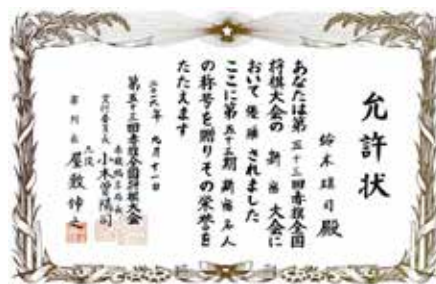 允許状
鈴木 瑛司 殿
あなたは第五十三回赤旗全国
将棋大会の 新潟 大会に
おいて優勝されました
ここに第五十三期新潟名人
の称号を贈りその栄誉を
たたえます
二〇一六年 九月十一日
第五十三回赤旗全国将棋大会
実行委員長
赤旗編集局長 小木曽陽司
審判長
九段 屋敷伸之